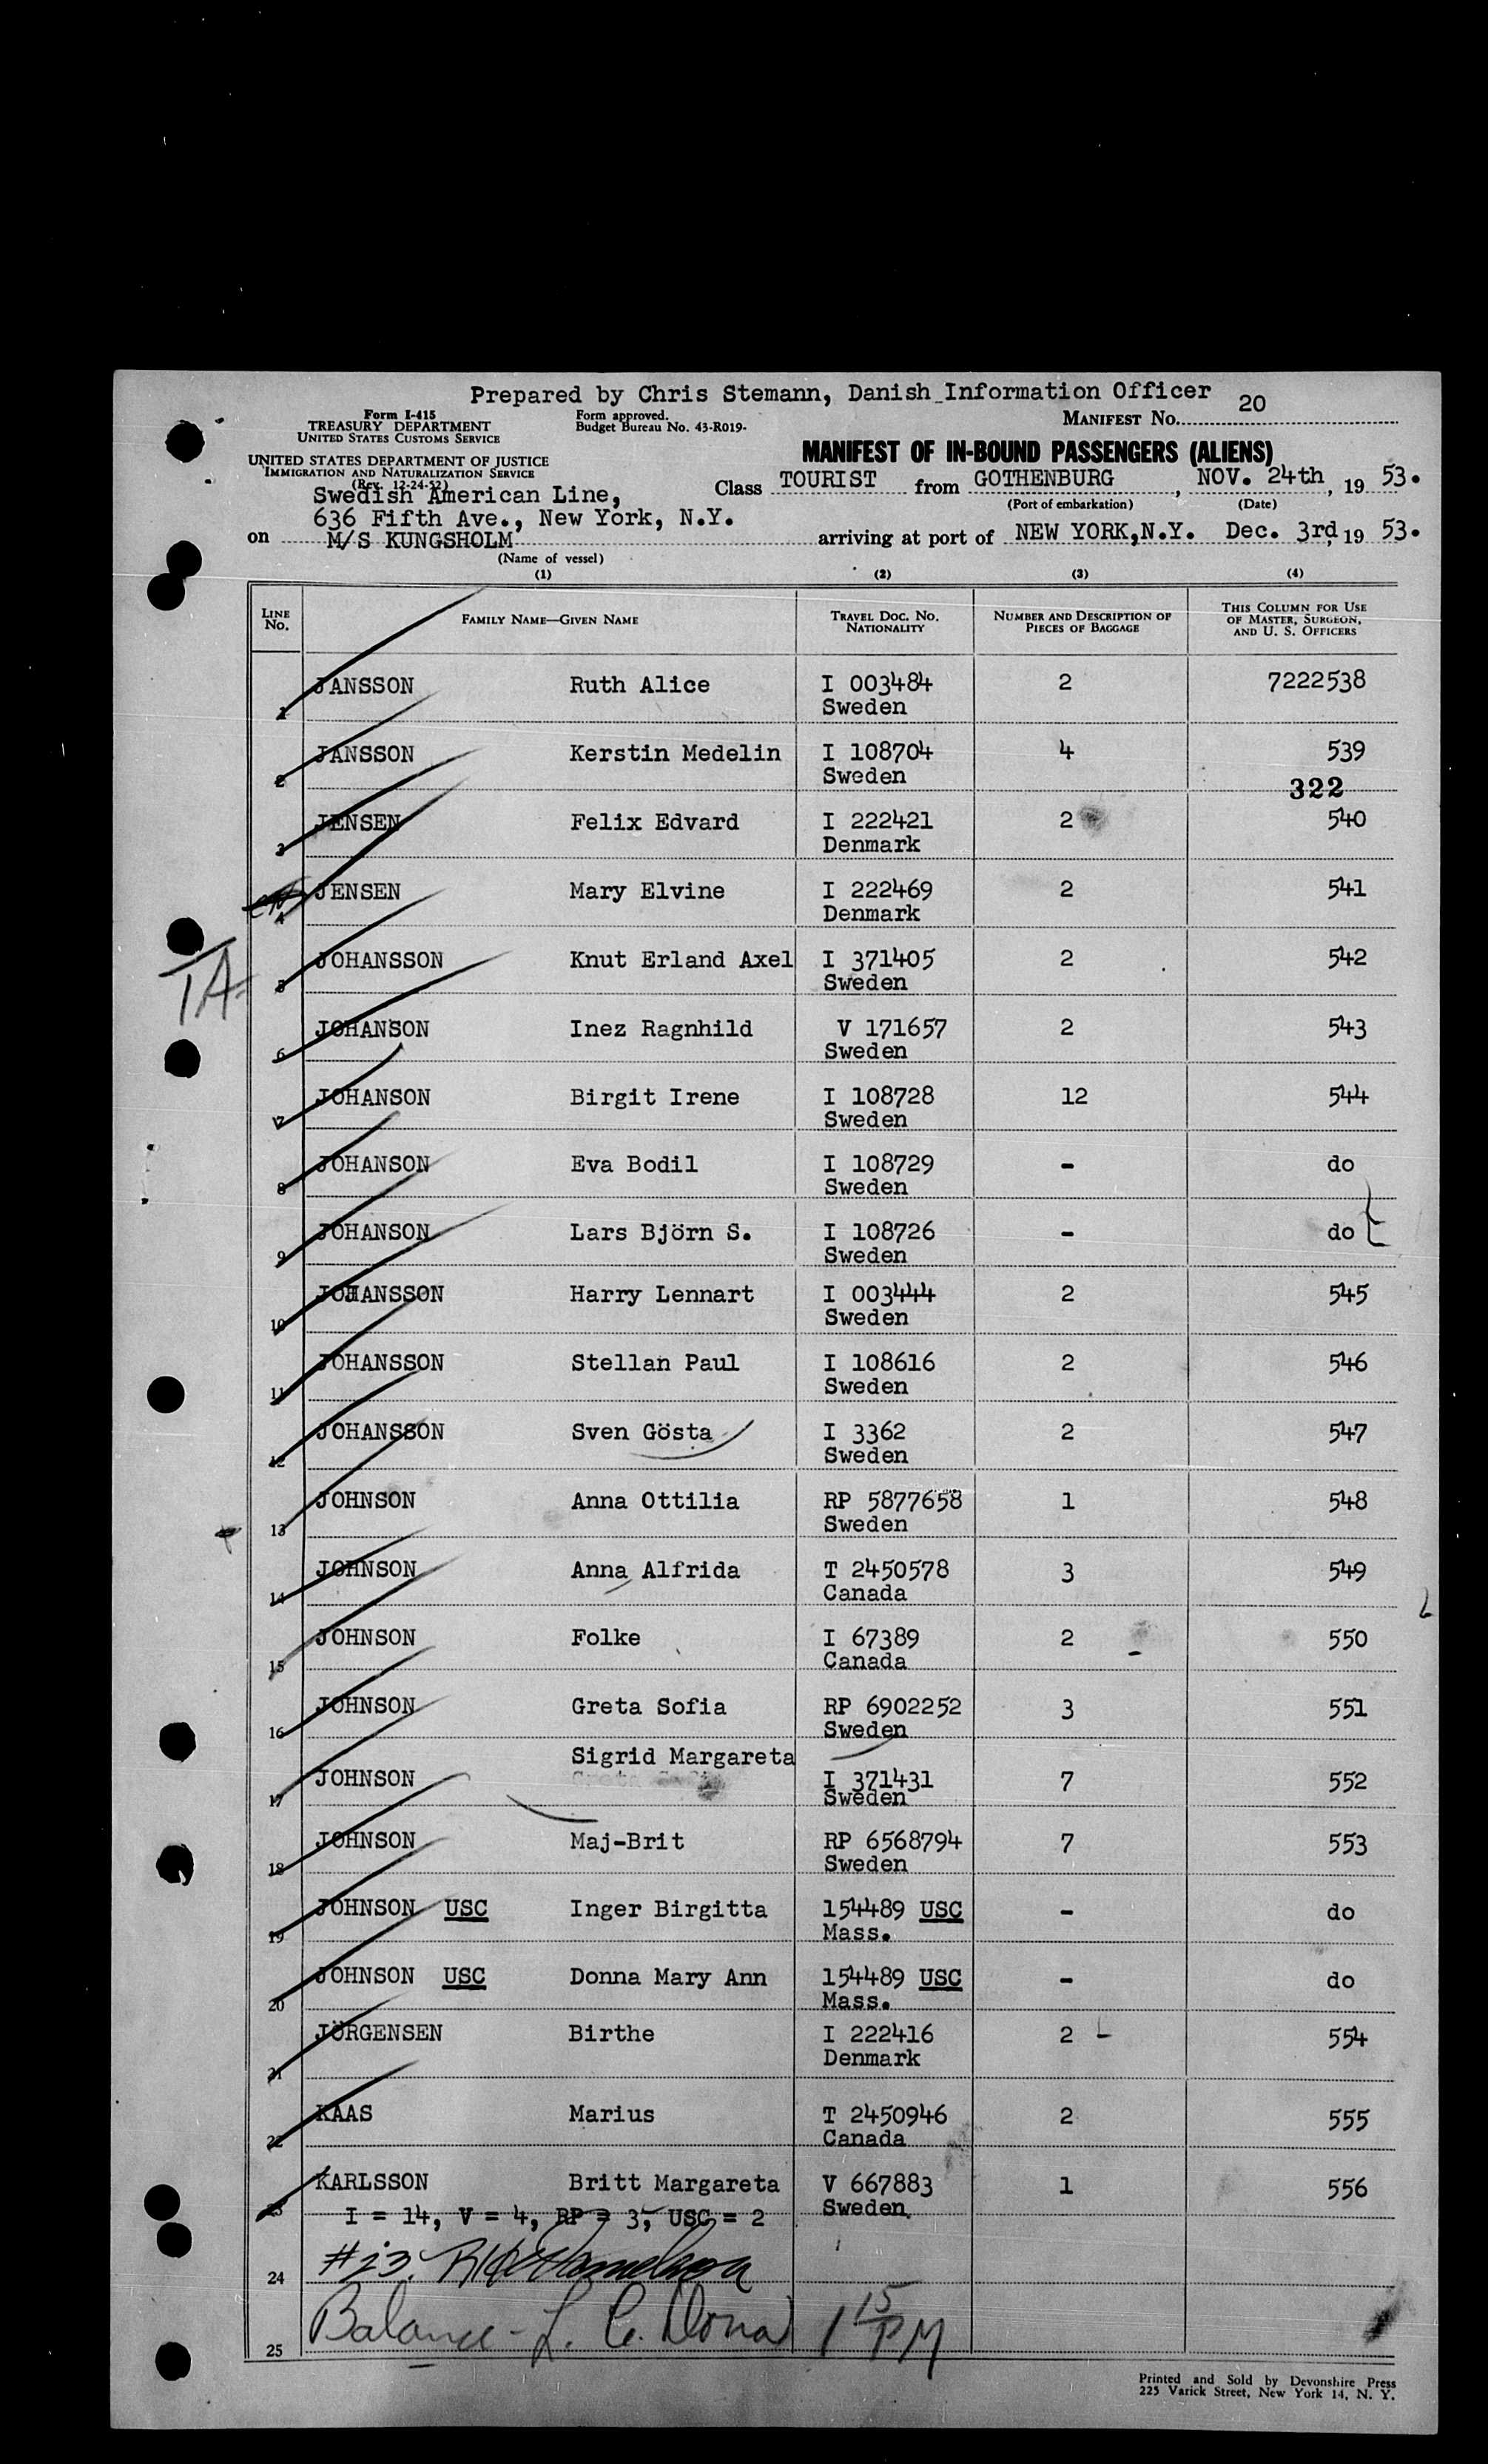 Prepared by Chris Stemann, Danish Information Officer
Form I-415
TREASURY DEPARTMENT
UNITED STATES CUSTOMS SERVICE
Form approved.
Budget Bureau No. 43-R019-
MANIFEST No. 20
UNITED STATES DEPARTMENT OF JUSTICE
IMMIGRATION AND NATURALIZATION SERVICE
(Rev. 12-24-52)
MANIFEST OF IN-BOUND PASSENGERS (ALIENS)
Swedish American Line,
636 Fifth Ave., New York, N.Y.
Class TOURIST from GOTHENBURG, NOV. 24th, 19 53.
(Port of embarkation) (Date)
on M/S KUNGSHOLM arriving at port of NEW YORK, N.Y. Dec. 3rd, 19 53.
(Name of vessel)
(1) (2) (3) (4)
LINE No. FAMILY NAME—GIVEN NAME TRAVEL DOC. No. NATIONALITY NUMBER AND DESCRIPTION OF PIECES OF BAGGAGE THIS COLUMN FOR USE OF MASTER, SURGEON, AND U. S. OFFICERS
1 JANSSON Ruth Alice I 003484 2 7222538
Sweden
2 JANSSON Kerstin Medelin I 108704 4 539
Sweden
322
3 JENSEN Felix Edvard I 222421 2 540
Denmark
4 JENSEN Mary Elvine I 222469 2 541
Denmark
1A
5 JOHANSSON Knut Erland Axel I 371405 2 542
Sweden
6 JOHANSON Inez Ragnhild V 171657 2 543
Sweden
7 JOHANSON Birgit Irene I 108728 12 544
Sweden
8 JOHANSON Eva Bodil I 108729 - do
Sweden
9 JOHANSON Lars Björn S. I 108726 - do
Sweden
10 JOHANSSON Harry Lennart I 003444 2 545
Sweden
11 JOHANSSON Stellan Paul I 108616 2 546
Sweden
12 JOHANSSON Sven Gösta I 3362 2 547
Sweden
13 JOHNSON Anna Ottilia RP 5877658 1 548
Sweden
14 JOHNSON Anna Alfrida T 2450578 3 549
Canada
15 JOHNSON Folke I 67389 2 550
Canada
16 JOHNSON Greta Sofia RP 6902252 3 551
Sweden
Sigrid Margareta
17 JOHNSON I 371431 7 552
Sweden
18 JOHNSON Maj-Brit RP 6568794 7 553
Sweden
19 JOHNSON USC Inger Birgitta 154489 USC - do
Mass.
20 JOHNSON USC Donna Mary Ann 154489 USC - do
Mass.
21 JÖRGENSEN Birthe I 222416 2 554
Denmark
22 KAAS Marius T 2450946 2 555
Canada
23 KARLSSON Britt Margareta V 667883 1 556
Sweden
I = 14, V = 4, RP = 3, USC = 2
24 #23
25 Balance - L. C. 1 15 PM
Printed and Sold by Devonshire Press
225 Varick Street, New York 14, N. Y.